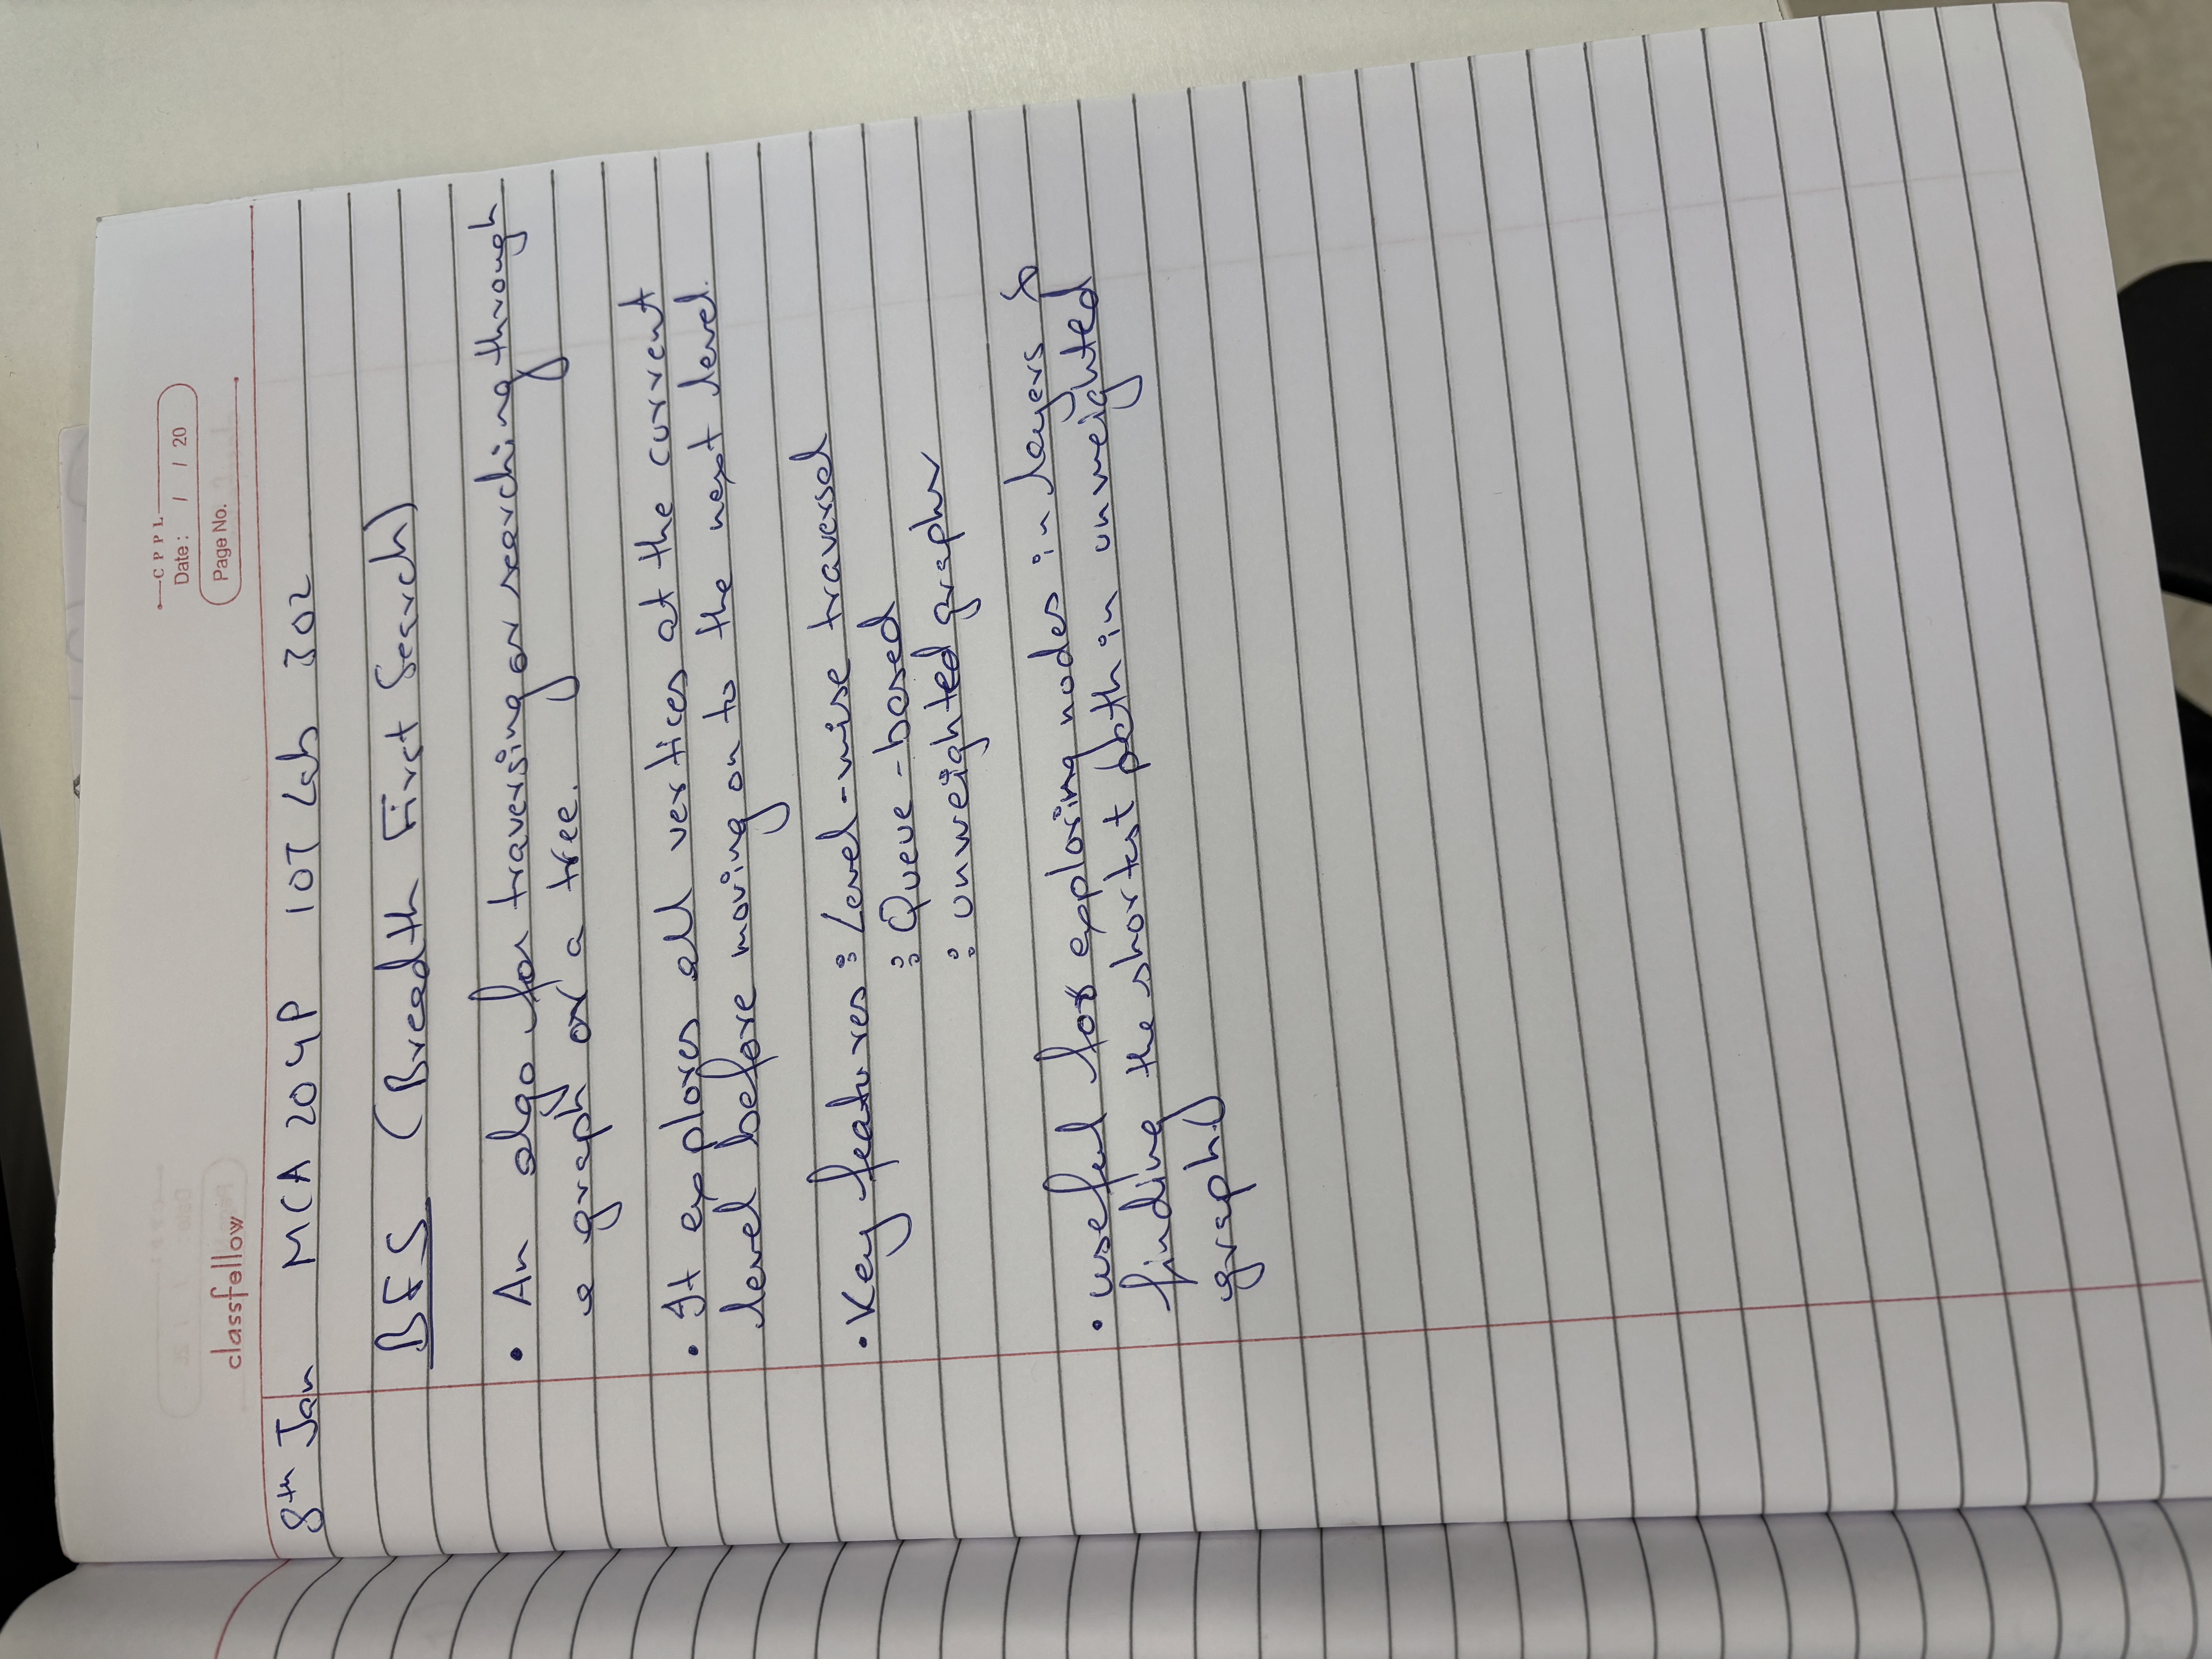 CPPL
Date : / / 20
classfellow
Page No.
8th Jan MCA 204P IOT Lab 302
BFS (Breadth First Search)
• An algo for traversing or searching through
a graph or a tree.
• It explores all vertices at the current
level before moving on to the next level.
• Key features : Level-wise traversal
: Queue-based
: unweighted graphs
• useful for exploring nodes in layers &
finding the shortest path in unweighted
graph.